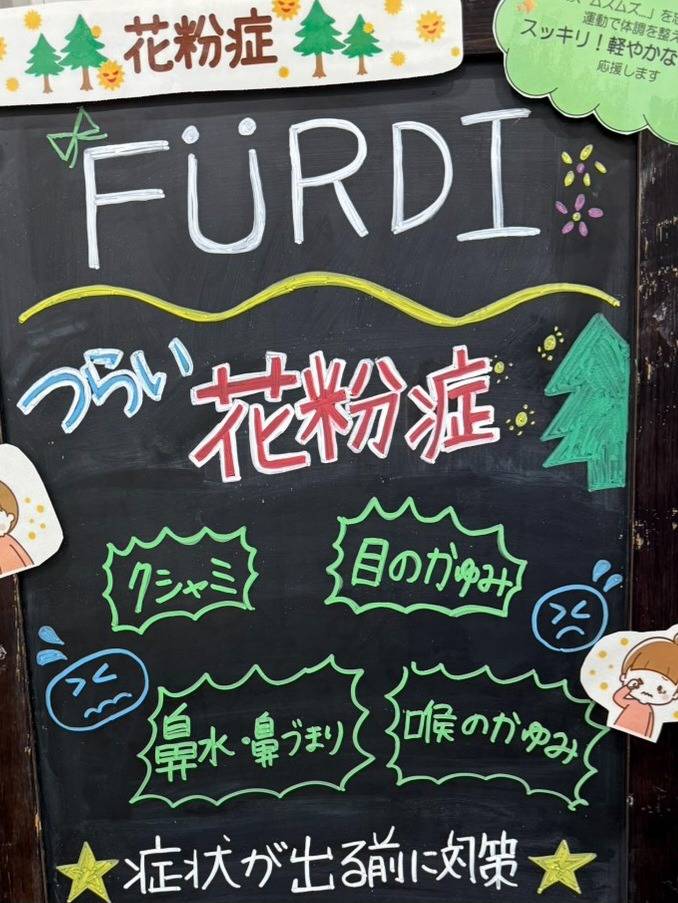 花粉症
ムズムズ…」を
運動で体調を整え
スッキリ！軽やかな
応援します
FÜRDI
つらい花粉症
クシャミ
目のかゆみ
鼻水・鼻づまり
喉のかゆみ
症状が出る前に対策